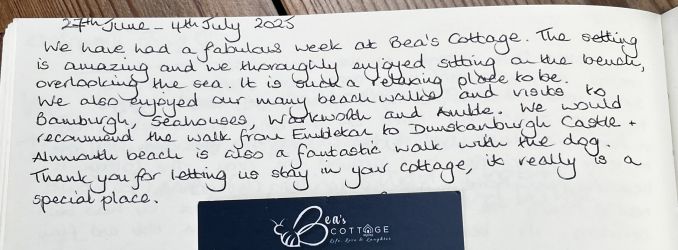 27th June - 4th July 2025
We have had a fabulous week at Bea's Cottage. The setting
is amazing and we thoroughly enjoyed sitting on the bench,
overlooking the sea. It is such a relaxing place to be.
We also enjoyed our many beach walks and visits to
Bamburgh, Seahouses, Warkworth and Amble. We would
recommend the walk from Embleton to Dunstanburgh Castle +
Alnmouth beach is also a fantastic walk with the dog.
Thank you for letting us stay in your cottage, its really is a
special place.
Bea's
COTTAGE
Life, Love & Laughter